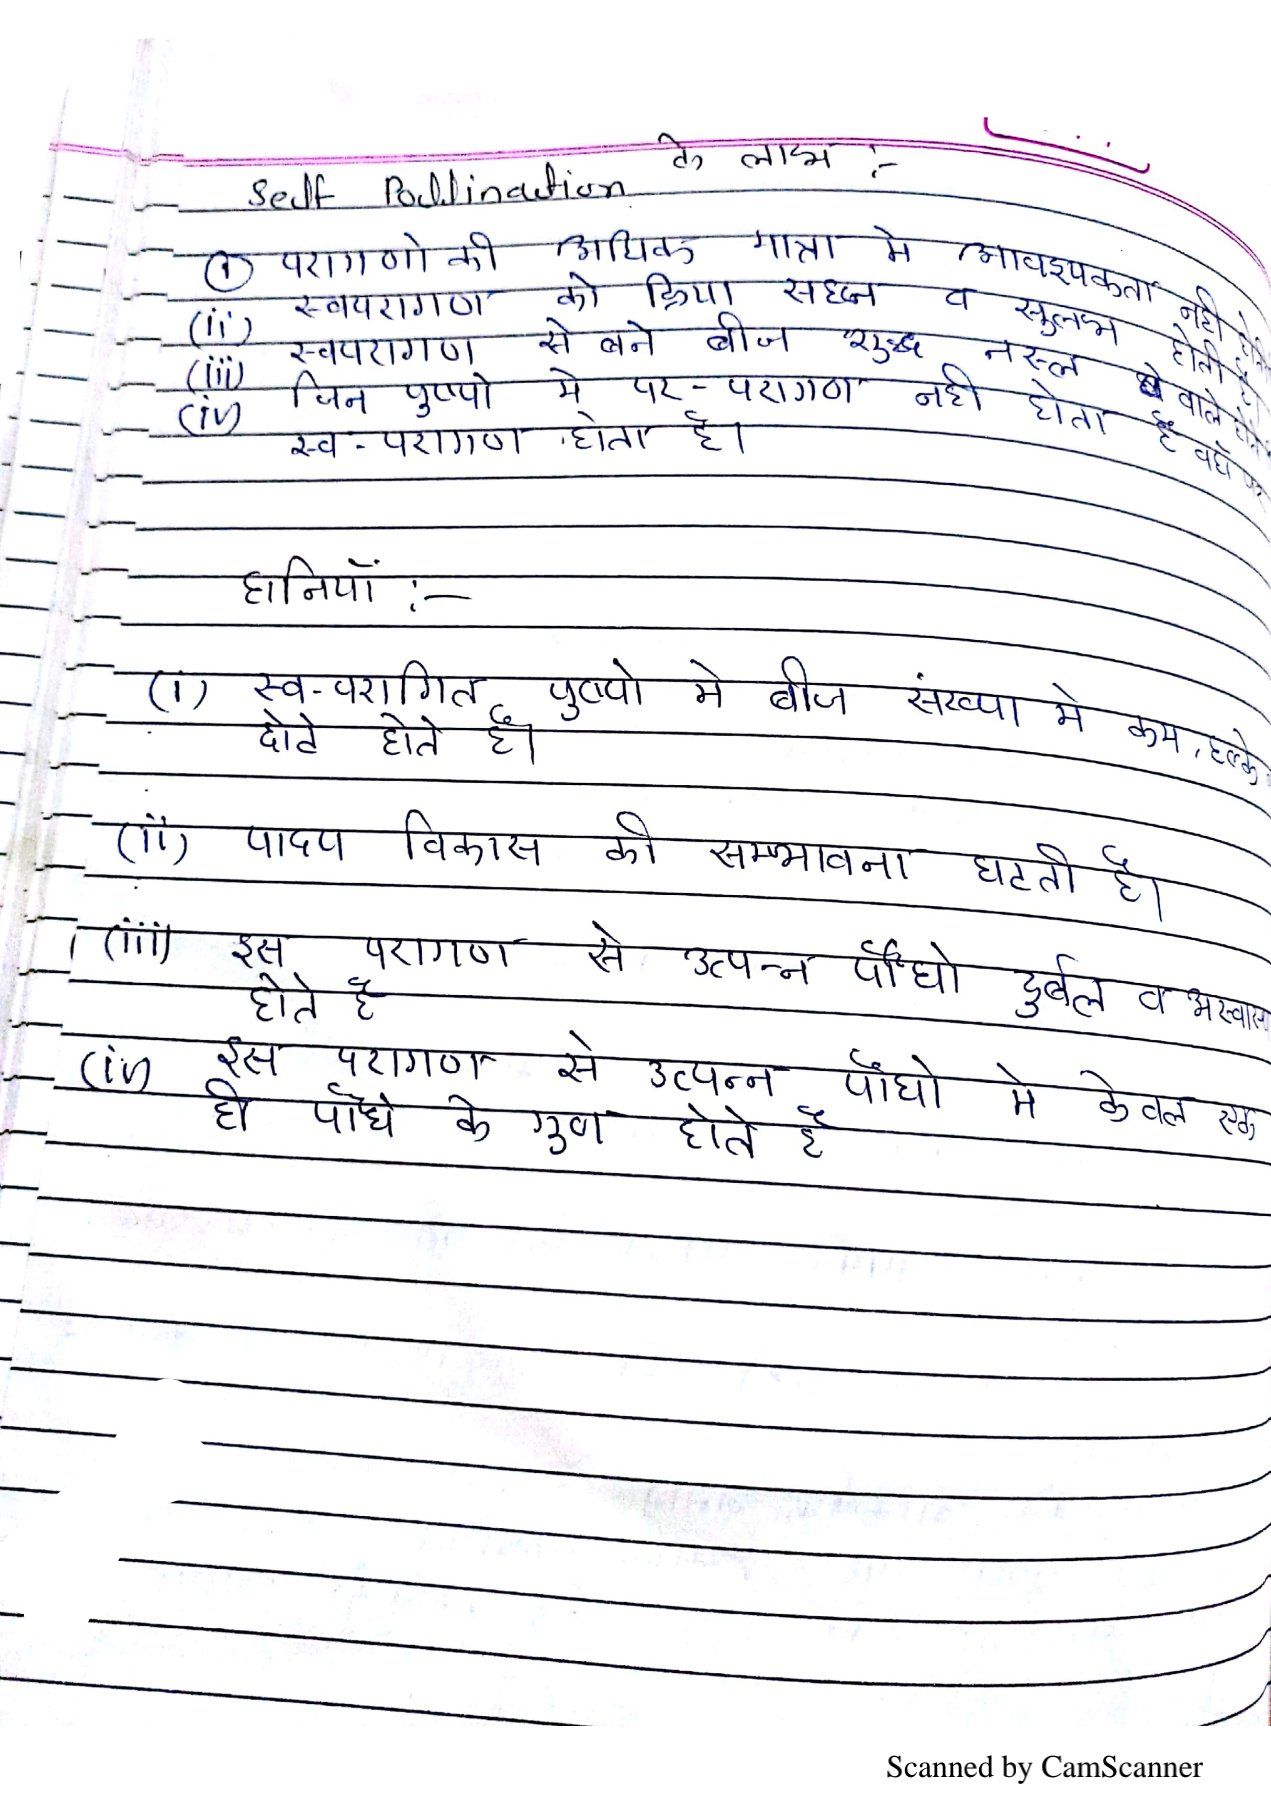 Self Pollination के लाभ :-
(i) परागणो की अधिक मात्रा मे आवश्यकता नही होती
(ii) स्वपरागण को क्रिया सहज व सुलभ होती है।
(iii) स्वपरागण से बने बीज शुद्ध नस्ल वाले होते
(iv) जिन पुष्पो मे पर-परागण नही होता है वहाँ पर
स्व-परागण होता है।
हानियाँ :-
(i) स्व-परागित पुष्पो मे बीज संख्या मे कम, हल्के
छोटे होते है।
(ii) पादप विकास की सम्भावना घटती है।
(iii) इस परागण से उत्पन्न पौधो दुर्बल व अस्वास
होते है
(iv) इस परागण से उत्पन्न पौधो मे केवल एक
ही पौधे के गुण होते है
Scanned by CamScanner